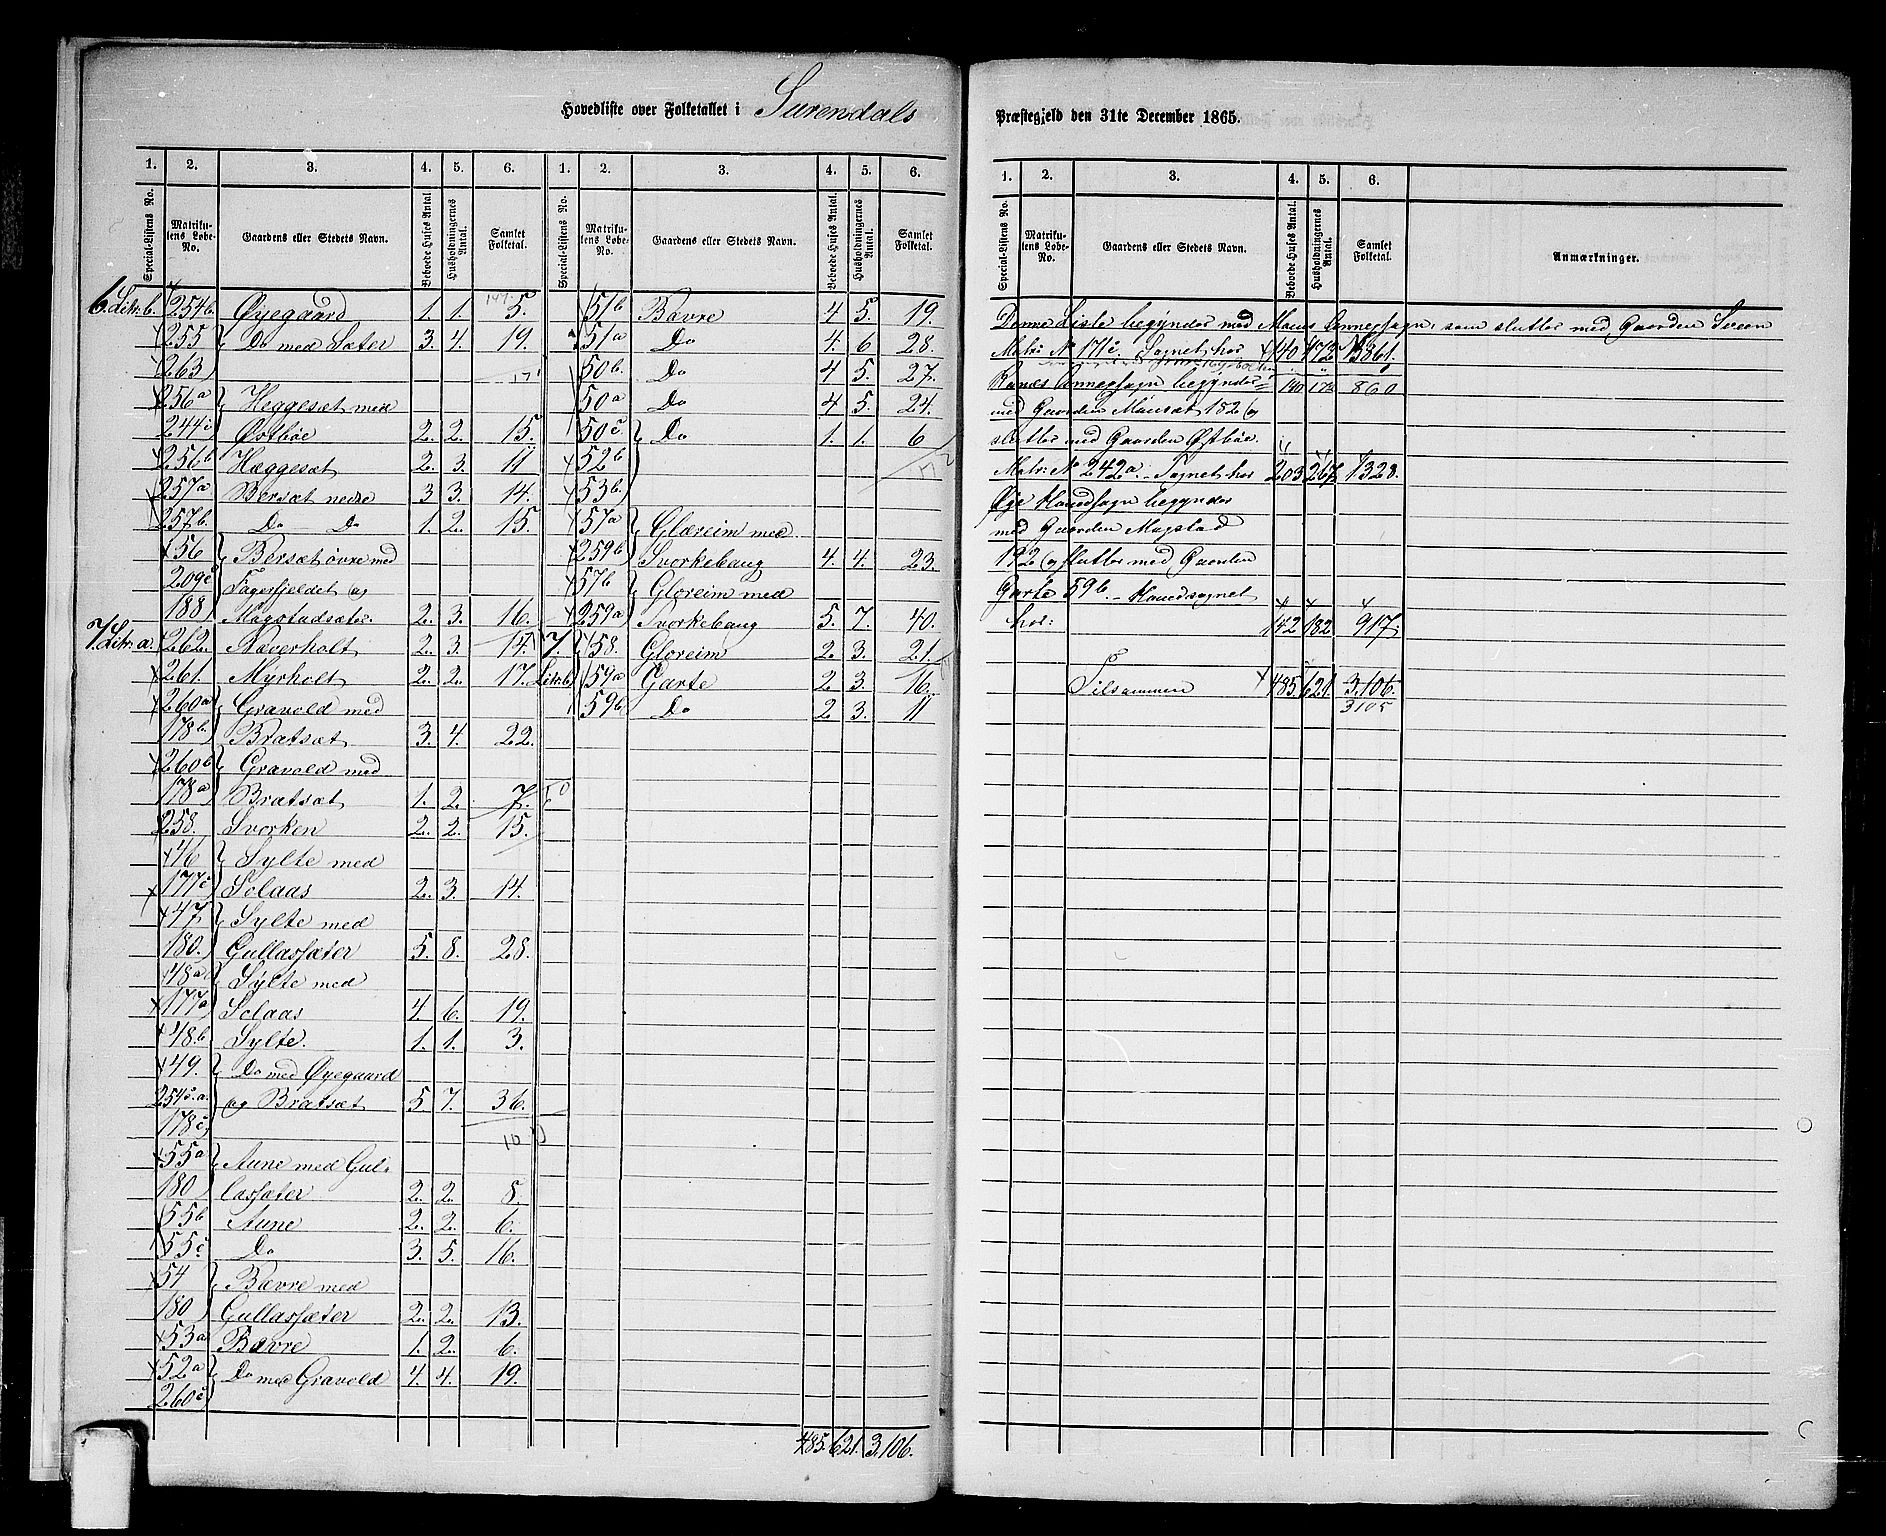 Hovedliste over Folketallet i Surendals
1. 2. 3. 4. 5. 6. 1. 2. 3. 4. 5. 6.
Special-Listens No. Matrikulens Løbe-No. Gaardens eller Stedets Navn. Beboede Huses Antal. Husholdningernes Antal. Samlet Folketal. Special-Listens No. Matrikulens Løbe-No. Gaardens eller Stedets Navn. Beboede Huses Antal. Husholdningernes Antal. Samlet Folketal.
6. Litr. b. 254b. Øyegaard 1. 1. 5.
255 Do med Sæter 3. 4. 19.
263
256a Heggesæt med
244c Østbøe 2. 2. 15.
256b Hæggesæt 2. 3. 11
257a Bersæt nedre 3 3. 14.
257b. Do Do 1. 2. 15.
56 Bersæt øvre med
209c Fagerfjeldet og
188 Magstadsæter 2. 3. 16.
7. Litr. a. 262. Næverholt 2. 3. 14.
261. Myrholt 2. 2. 17.
260a Gravold med
178b. Brætsæt 3. 4. 22.
260b Gravold med
178a Brætsæt 1. 2. 7.
258. Svorken 2. 2. 15.
46 Sylte med
177c Solaas 2. 3. 14.
47. Sylte med
180. Gullassæter 5. 8. 28.
48a Sylte med
177a Solaas 4. 6. 19.
48b Sylte. 1. 1. 3.
49. Do med Øyegaard
254c.a. og Brætsæt 5 7. 36.
178c
55a Aune med Gul-
180 lassæter 2. 2. 8.
55b Aune 2. 2. 6.
55c Do 3. 5. 16.
54 Bævre med
180 Gullassæter 2. 2. 13.
53a Bævre 1. 2. 6.
52a Do med Gravold 4. 4. 19.
260c
51b Bævre 4 5. 19.
51a Do 4. 6 28.
50b. Do 4 5. 27.
50a Do 4 5. 24.
50c Do 1. 1. 6
52b
53b.
57a Glæreim med
259b Svorkebaug 4. 4. 23.
57b Gloreim med
259a Svorkebaug 5. 7. 40.
7. 58. Gloreim 2. 3. 21.
Litr. b 59a Garte 2. 3. 16.
59b Do 2 3. 11
485. 621. 3,106.
Præstegjeld den 31te December 1865.
1. 2. 3. 4. 5. 6.
Special-Listens No. Matrikulens Løbe-No. Gaardens eller Stedets Navn. Beboede Huses Antal. Husholdningernes Antal. Samlet Folketal. Anmærkninger.
Denne Liste begynder med Moens Annexsogn, som slutter med Gaarden Sveen
Matr: No 171c. Sognet har 140 172 861.
Ranæs Annexsogn begynder 140 172 860
med Gaarden Mausæt 152 og
slutter med Gaarden Østbøe.
Matr: No 242a. Sognet har 203 267 1328.
Øye Hovedsogn begynder
med Gaarden Mogstad
192 og slutter med Gaarden
Garte 59b. Hovedsognet
har: 142 182 917.
Tilsammen 485 621. 3,106.
3105